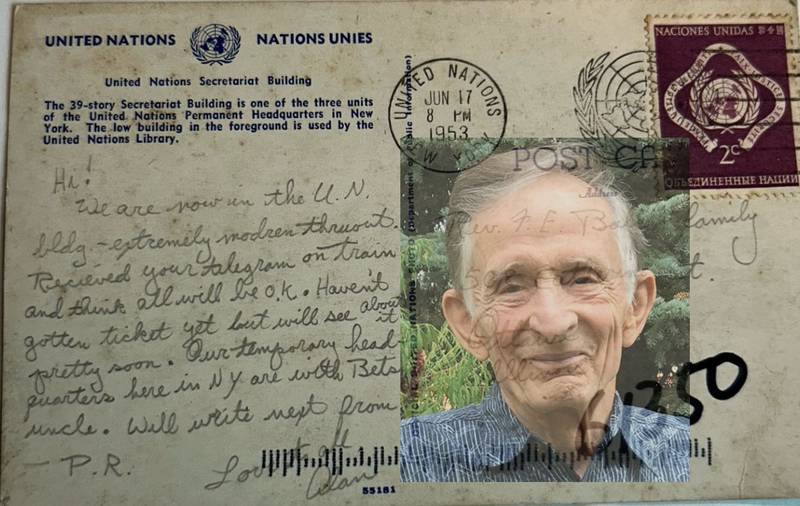 UNITED NATIONS NATIONS UNIES
United Nations Secretariat Building
The 39-story Secretariat Building is one of the three units
of the United Nations Permanent Headquarters in New
York. The low building in the foreground is used by the
United Nations Library.
UNITED NATIONS
JUN 17
8 PM
1953
NACIONES UNIDAS
2c
ОБЪЕДИНЕННЫЕ НАЦИИ
POST
Address
Hi!
We are now in the U.N.
bldg. - extremely modren thruout.
Recieved your telegram on train
and think all will be O.K. Haven't
gotten ticket yet but will see about it
pretty soon. Our temporary head-
quarters here in NY are with Bets
uncle. Will write next from
- P.R.
Love to all
Alan
Rev. F. E. family
UNITED NATIONS PHOTO (Department of Public Information)
1350
55181